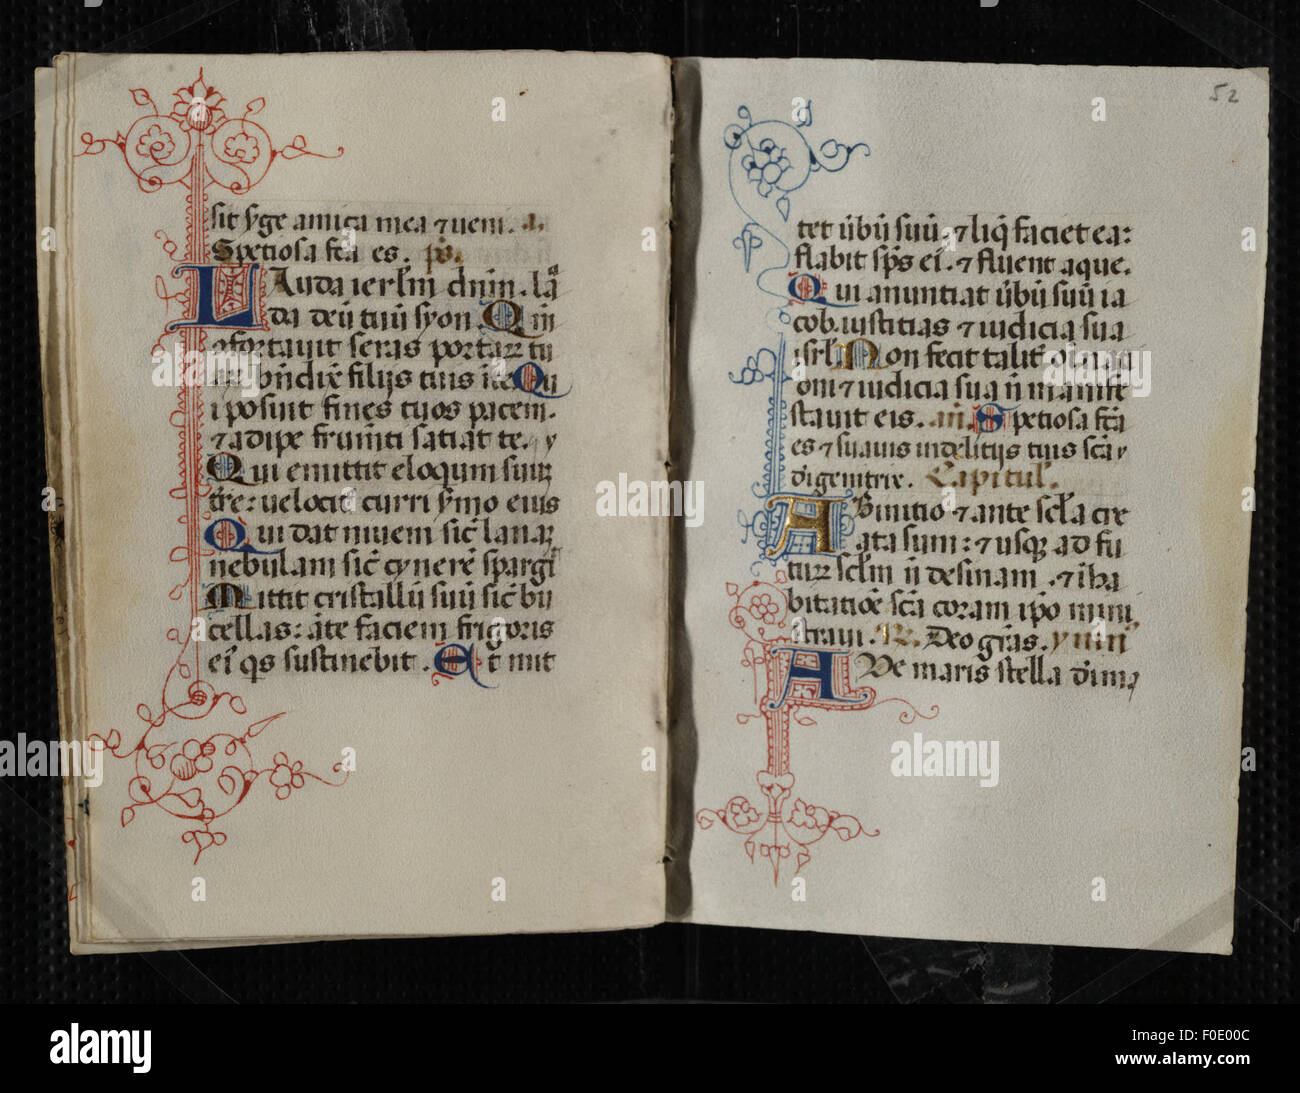 sit sỹge amica mea ⁊ ueni. a.
Spetiosa fc̄a es. ps̄.
LAuda ierl̄m dn̄m. la
da deū tuū syon. Qm̄
ɔfortauit seras portaꝝ tu
aꝝ bn̄dix̄ filijs tuis ī te. Qui
i posuit fines tuos pacem.
⁊ adipe frum̄ti satiat te. y
Qui emittit eloqum suuꝝ
tr̄e: uelocit̄ curri s̄ymo eius
Qui dat niuem sic̄ lanaꝝ
nebulam sic̄ cynerē spargi
Mittit cristallū suū sic̄ bu
cellas: āte faciem frigoris
ei᷑ q̄s sustinebit. Et mit
52
tet ūbū suū. ⁊ liq̄ faciet ea:
flabit sp̄s ei᷑. ⁊ fluent aque.
Qui anuntiat ūbū suū ia
cob. iustitias ⁊ iudicia sua
isrl̄. Non fecit talit̄
oni ⁊ iudicia sua n̄ manife
stauit eis. an̄. Spetiosa fc̄a
es ⁊ suauis indelitijs tuis sc̄a
dī genitrix. Capitul᷑.
ABinitio ⁊ ante scl̄a cre
ata sum: ⁊ usqꝫ ad fu
tuꝝ scl̄m n̄ desinam. ⁊ ī ha
bitatiōe sc̄a coram ip̄o mini
straui. R. Deo grās. ymn᷑
AVe maris stella dī ma
alamy
alamy stock photo
Image ID: F0E00C
www.alamy.com